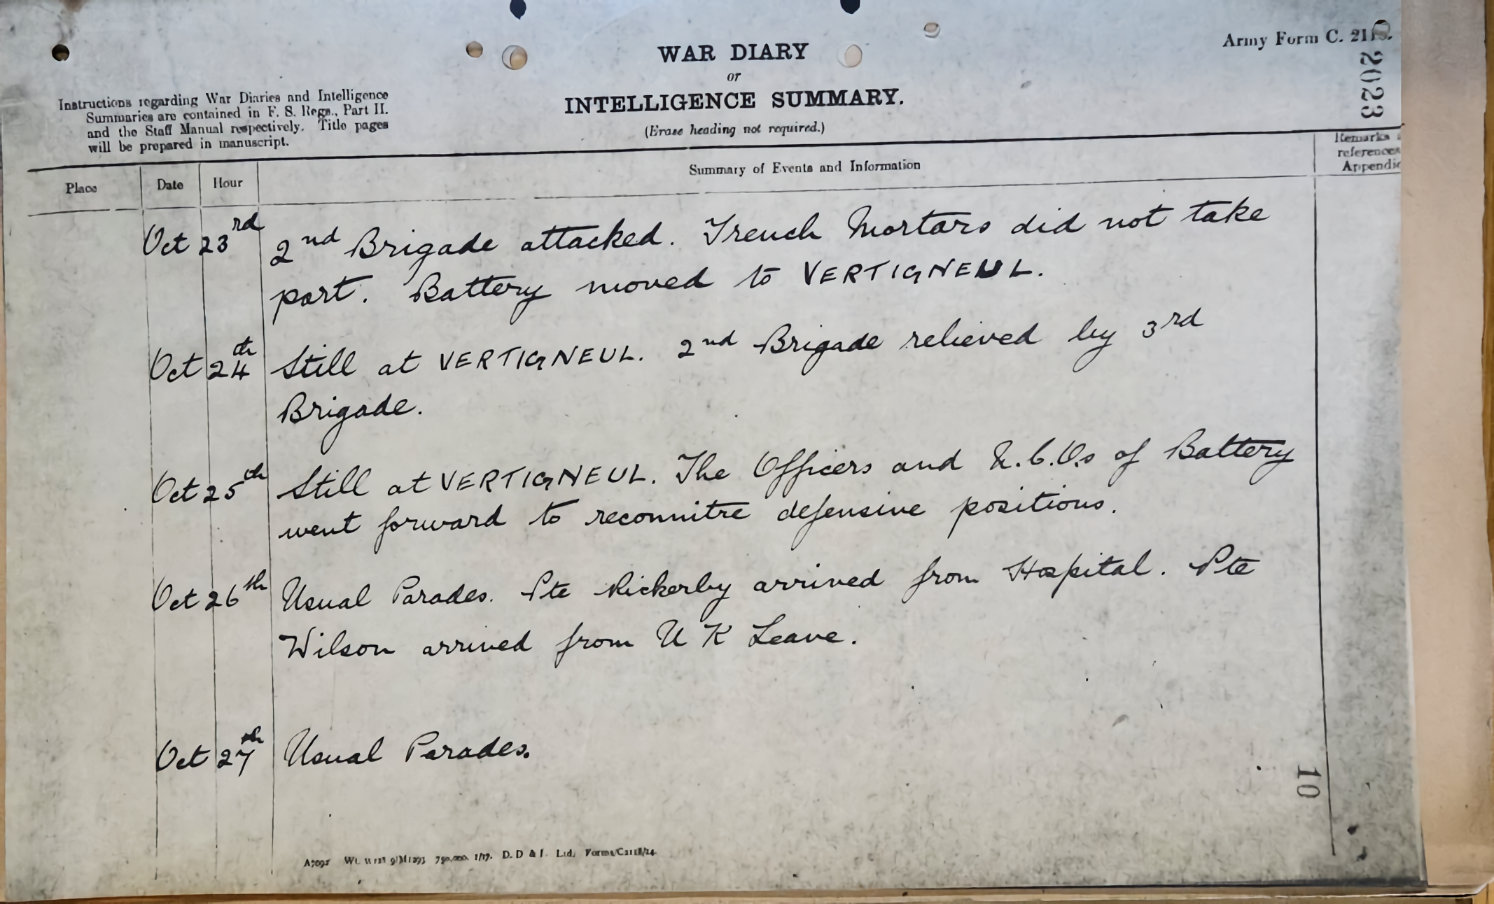 Army Form C. 2118.
WAR DIARY
or
INTELLIGENCE SUMMARY.
(Erase heading not required.)
Instructions regarding War Diaries and Intelligence
Summaries are contained in F. S. Regs., Part II.
and the Staff Manual respectively. Title pages
will be prepared in manuscript.
2023
Place Date Hour Summary of Events and Information
Remarks
references
Appendic
Oct 23rd 2nd Brigade attacked. Trench Mortars did not take
part. Battery moved to VERTIGNEUL.
Oct 24th Still at VERTIGNEUL. 2nd Brigade relieved by 3rd
Brigade.
Oct 25th Still at VERTIGNEUL. The Officers and N.C.Os of Battery
went forward to reconnitre defensive positions.
Oct 26th Usual Parades. Pte Rickerby arrived from Hospital. Pte
Wilson arrived from U K Leave.
Oct 27th Usual Parades.
10
1/17. D. D & Ltd.